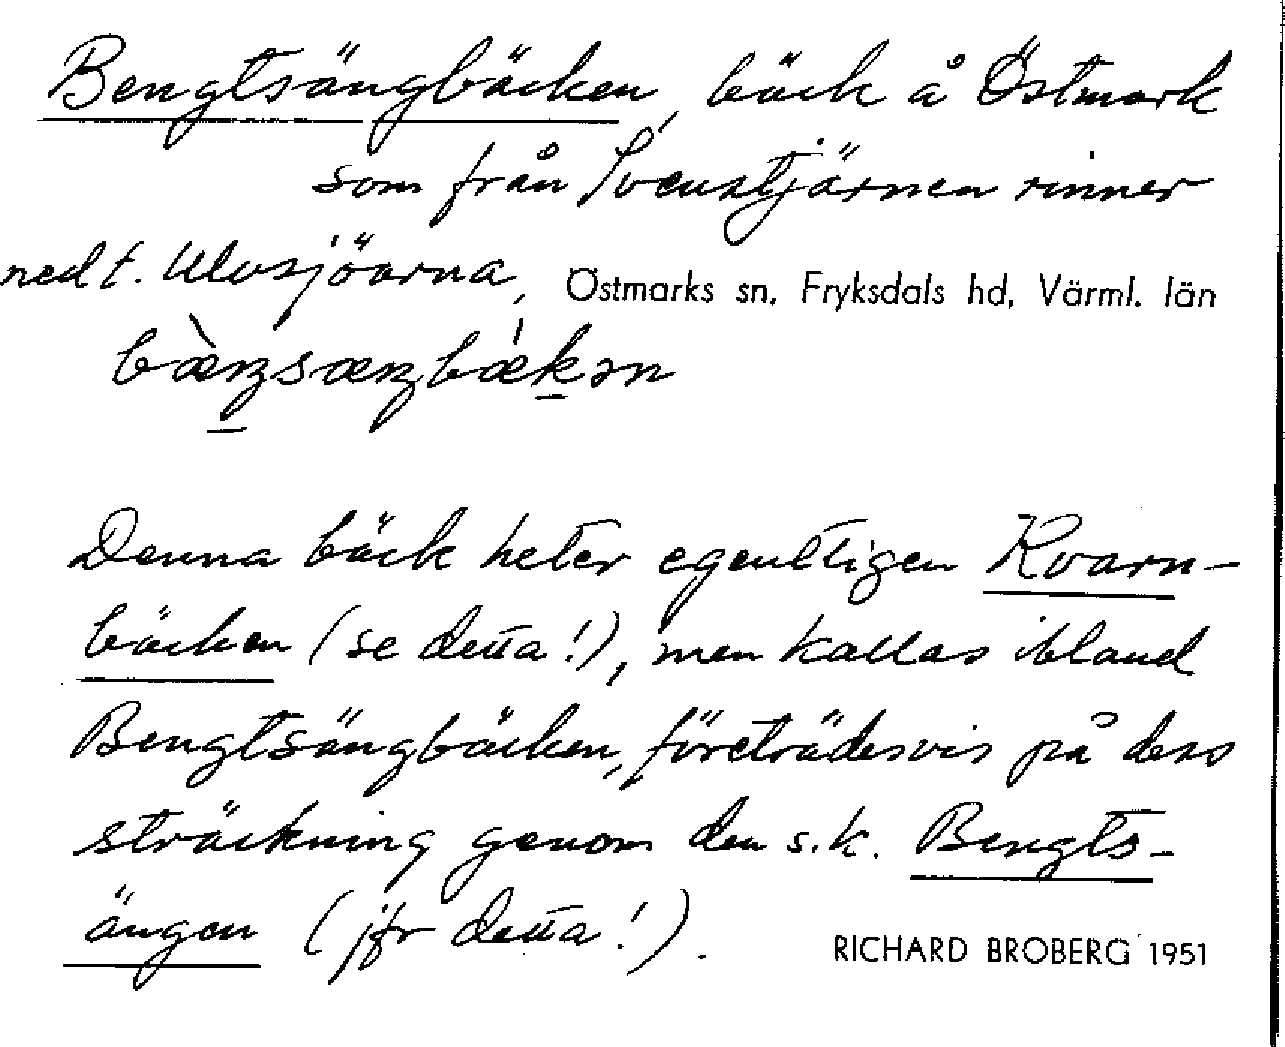 Bengtsängbäcken, bäck å Östmark
som från Svenstjärnen rinner
ned t. Ulvsjöarna, Östmarks sn, Fryksdals hd, Värml. län
bæ̀ŋsæŋbǽkən
Denna bäck heter egentligen Kvarn-
bäcken (se detta!), men kallas ibland
Bengtsängbäcken, företrädesvis på dess
sträckning genom den s.k. Bengts-
ängen (jfr detta!).
RICHARD BROBERG 1951